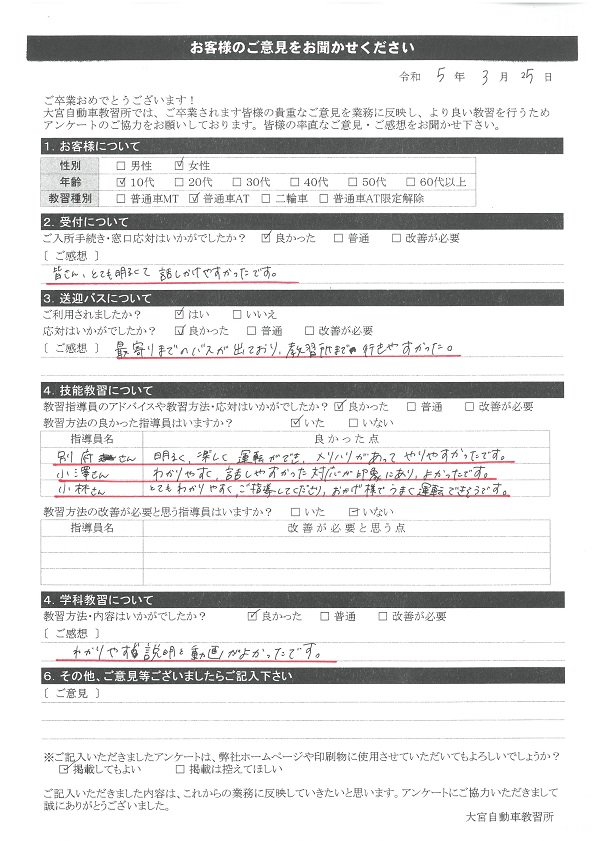 お客様のご意見をお聞かせください
令和 5 年 3 月 25 日
ご卒業おめでとうございます！
大宮自動車教習所では、ご卒業されます皆様の貴重なご意見を業務に反映し、より良い教習を行うため
アンケートのご協力をお願いしております。皆様の率直なご意見・ご感想をお聞かせ下さい。
1. お客様について
性別 □ 男性 ☑ 女性
年齢 ☑ 10代 □ 20代 □ 30代 □ 40代 □ 50代 □ 60代以上
教習種別 □ 普通車MT ☑ 普通車AT □ 二輪車 □ 普通車AT限定解除
2. 受付について
ご入所手続き・窓口応対はいかがでしたか？ ☑ 良かった □ 普通 □ 改善が必要
［ ご感想 ］
皆さん、とても明るくて 話しかけやすかったです。
3. 送迎バスについて
ご利用されましたか？ ☑ はい □ いいえ
応対はいかがでしたか？ ☑ 良かった □ 普通 □ 改善が必要
［ ご感想 ］ 最寄りまでのバスが出ており、教習所まで行きやすかった。
4. 技能教習について
教習指導員のアドバイスや教習方法・応対はいかがでしたか？ ☑ 良かった □ 普通 □ 改善が必要
教習方法の良かった指導員はいますか？ ☑ いた □ いない
指導員名 良かった点
別府 さん 明るく、楽しく 運転ができ、メリハリがあって やりやすかったです。
小澤さん わかりやすく、話しやすかった 対応が印象にあり、よかったです。
小林さん とてもわかりやすく、ご指導してくださり、おかげ様でうまく運転できそうです。
教習方法の改善が必要と思う指導員はいますか？ □ いた ☑ いない
指導員名 改善が必要と思う点
4. 学科教習について
教習方法・内容はいかがでしたか？ ☑ 良かった □ 普通 □ 改善が必要
［ ご感想 ］
わかりやすい説明と動画がよかったです。
6. その他、ご意見等ございましたらご記入下さい
［ ご意見 ］
※ご記入いただきましたアンケートは、弊社ホームページや印刷物に使用させていただいてもよろしいでしょうか？
☑ 掲載してもよい □ 掲載は控えてほしい
ご記入いただきました内容は、これからの業務に反映していきたいと思います。アンケートにご協力いただきまして
誠にありがとうございました。
大宮自動車教習所